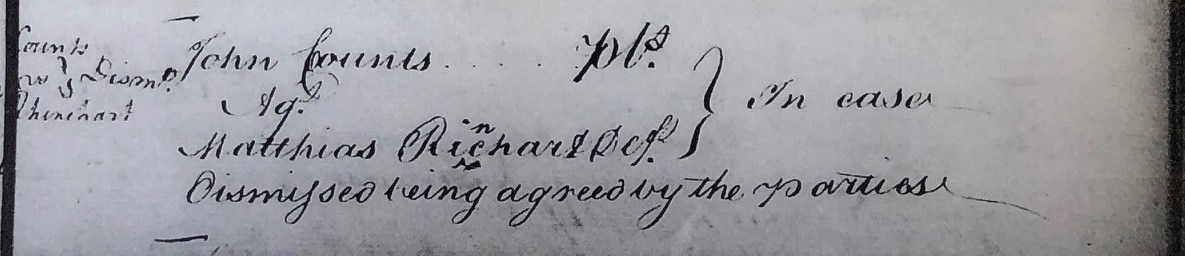 Counts
vs } Dismd.
Rhinehart
John Counts . . . . . Plt.
Agt.
Matthias Rinehart Deft. } In case
Dismissed being agreed by the parties